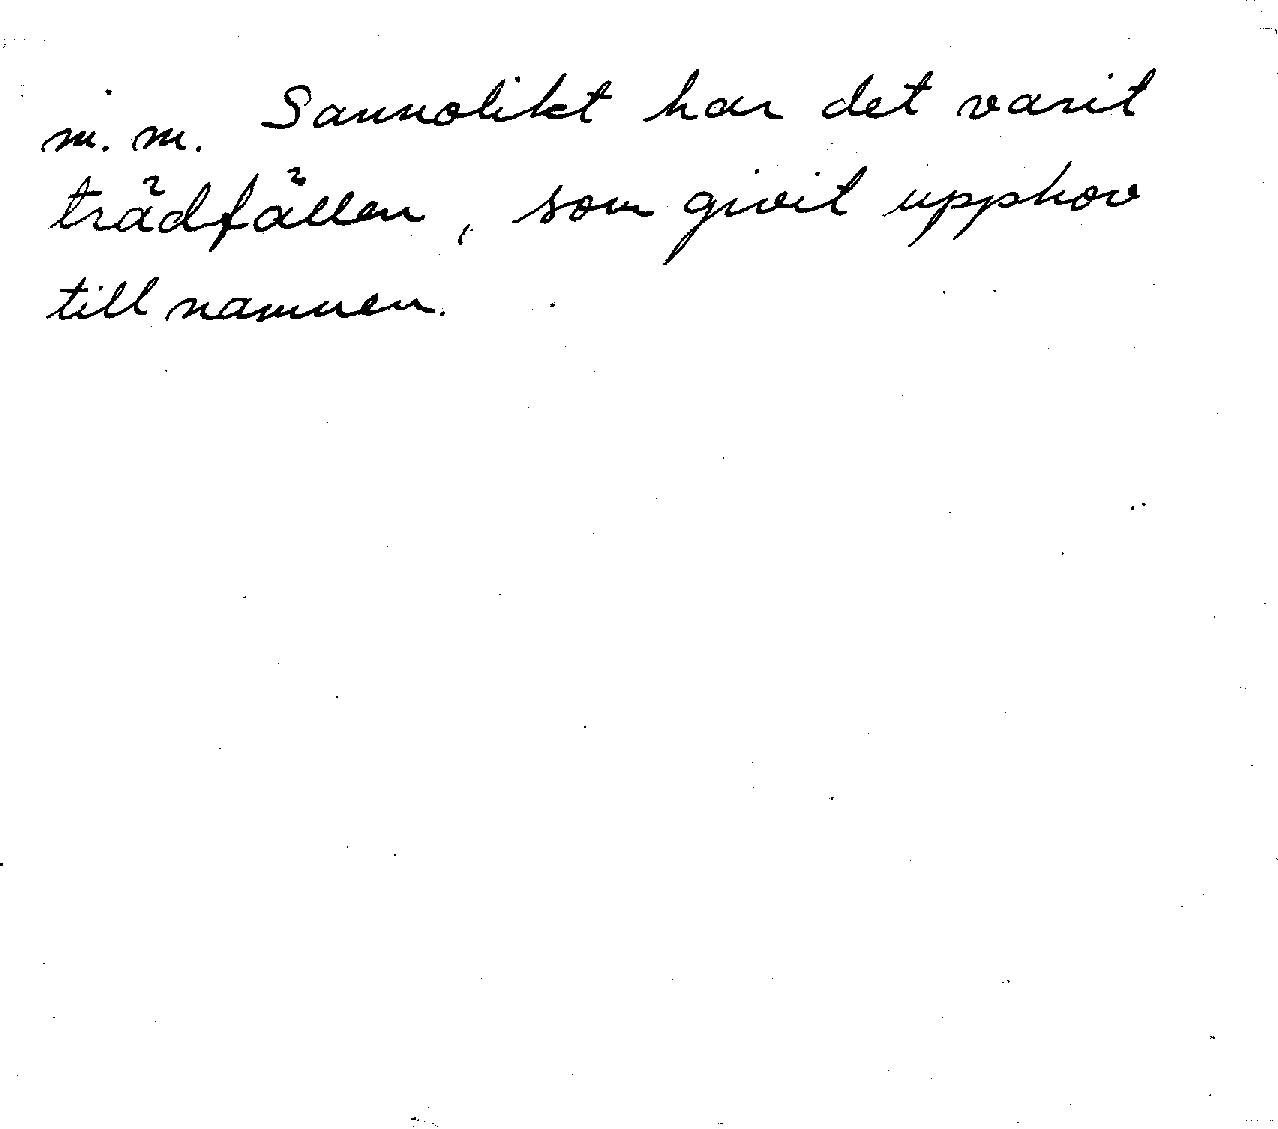 m. m. Sannolikt har det varit
trädfällen, som givit upphov
till namnen.